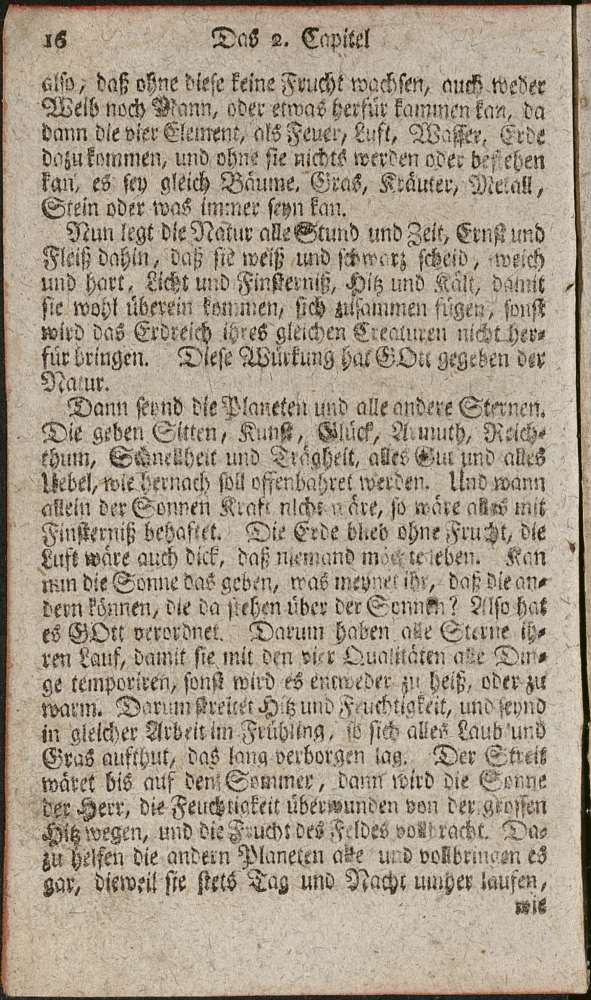 16 Das 2. Capitel
also, daß ohne diese keine Frucht wachsen, auch weder
Weib noch Mann, oder etwas herfür kammen kan, da
dann die vier Element, als Feuer, Luft, Wasser, Erde
dazu kommen, und ohne sie nichts werden oder bestehen
kan, es sey gleich Bäume, Gras, Kräuter, Metall,
Stein oder was immer seyn kan.
Nun legt die Natur alle Stund und Zeit, Ernst und
Fleiß dahin, daß sie weiß und schwarz scheid, weich
und hart, Licht und Finsterniß, Hitz und Kält, damit
sie wohl überein kommen, sich zusammen fügen, sonst
wird das Erdreich ihres gleichen Creaturen nicht her-
für bringen. Diese Würkung hat GOtt gegeben der
Natur.
Dann seynd die Planeten und alle andere Sternen.
Die geben Sitten, Kunst, Glück, Armuth, Reich-
thum, Schnellheit und Trägheit, alles Gut und alles
Uebel, wie hernach soll offenbahret werden. Und wann
allein der Sonnen Kraft nicht wäre, so wäre alles mit
Finsterniß behaftet. Die Erde blieb ohne Frucht, die
Luft wäre auch dick, daß niemand möchte leben. Kan
nun die Sonne das geben, was meynet ihr, daß die an-
dern können, die da stehen über der Sonnen? Also hat
es GOtt verordnet. Darum haben alle Sterne ih-
ren Lauf, damit sie mit den vier Qualitäten alle Din-
ge temporiren, sonst wird es entweder zu heiß, oder zu
warm. Darum streitet Hitz und Feuchtigkeit, und seynd
in gleicher Arbeit im Frühling, so sich alles Laub und
Gras aufthut, das lang verborgen lag. Der Streit
wäret bis auf den Sommer, dann wird die Sonne
der Herr, die Feuchtigkeit überwunden von der grossen
Hitz wegen, und die Frucht des Feldes vollbracht. Da-
zu helfen die andern Planeten alle und vollbringen es
gar, dieweil sie stets Tag und Nacht umher laufen,
wie